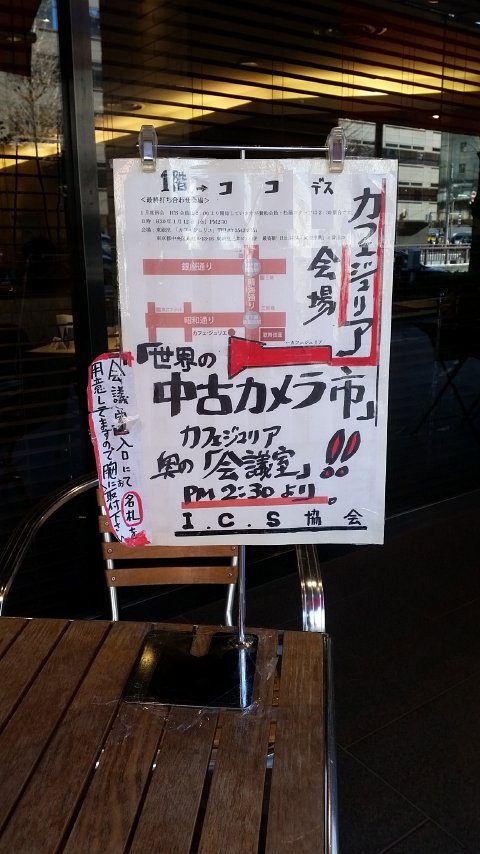 1階→ココデス
<最終打ち合わせ会場>
カフェジュリア
会場
銀座通り
昭和通り
カフェ・ジュリエ
←カフェ・ジュリア
「世界の
中古カメラ市」
カフェジュリア
奥の「会議室」!!
PM 2:30より。
I.C.S協会
「会議室」入口にて、名札を
用意してますので胸に取付下さい